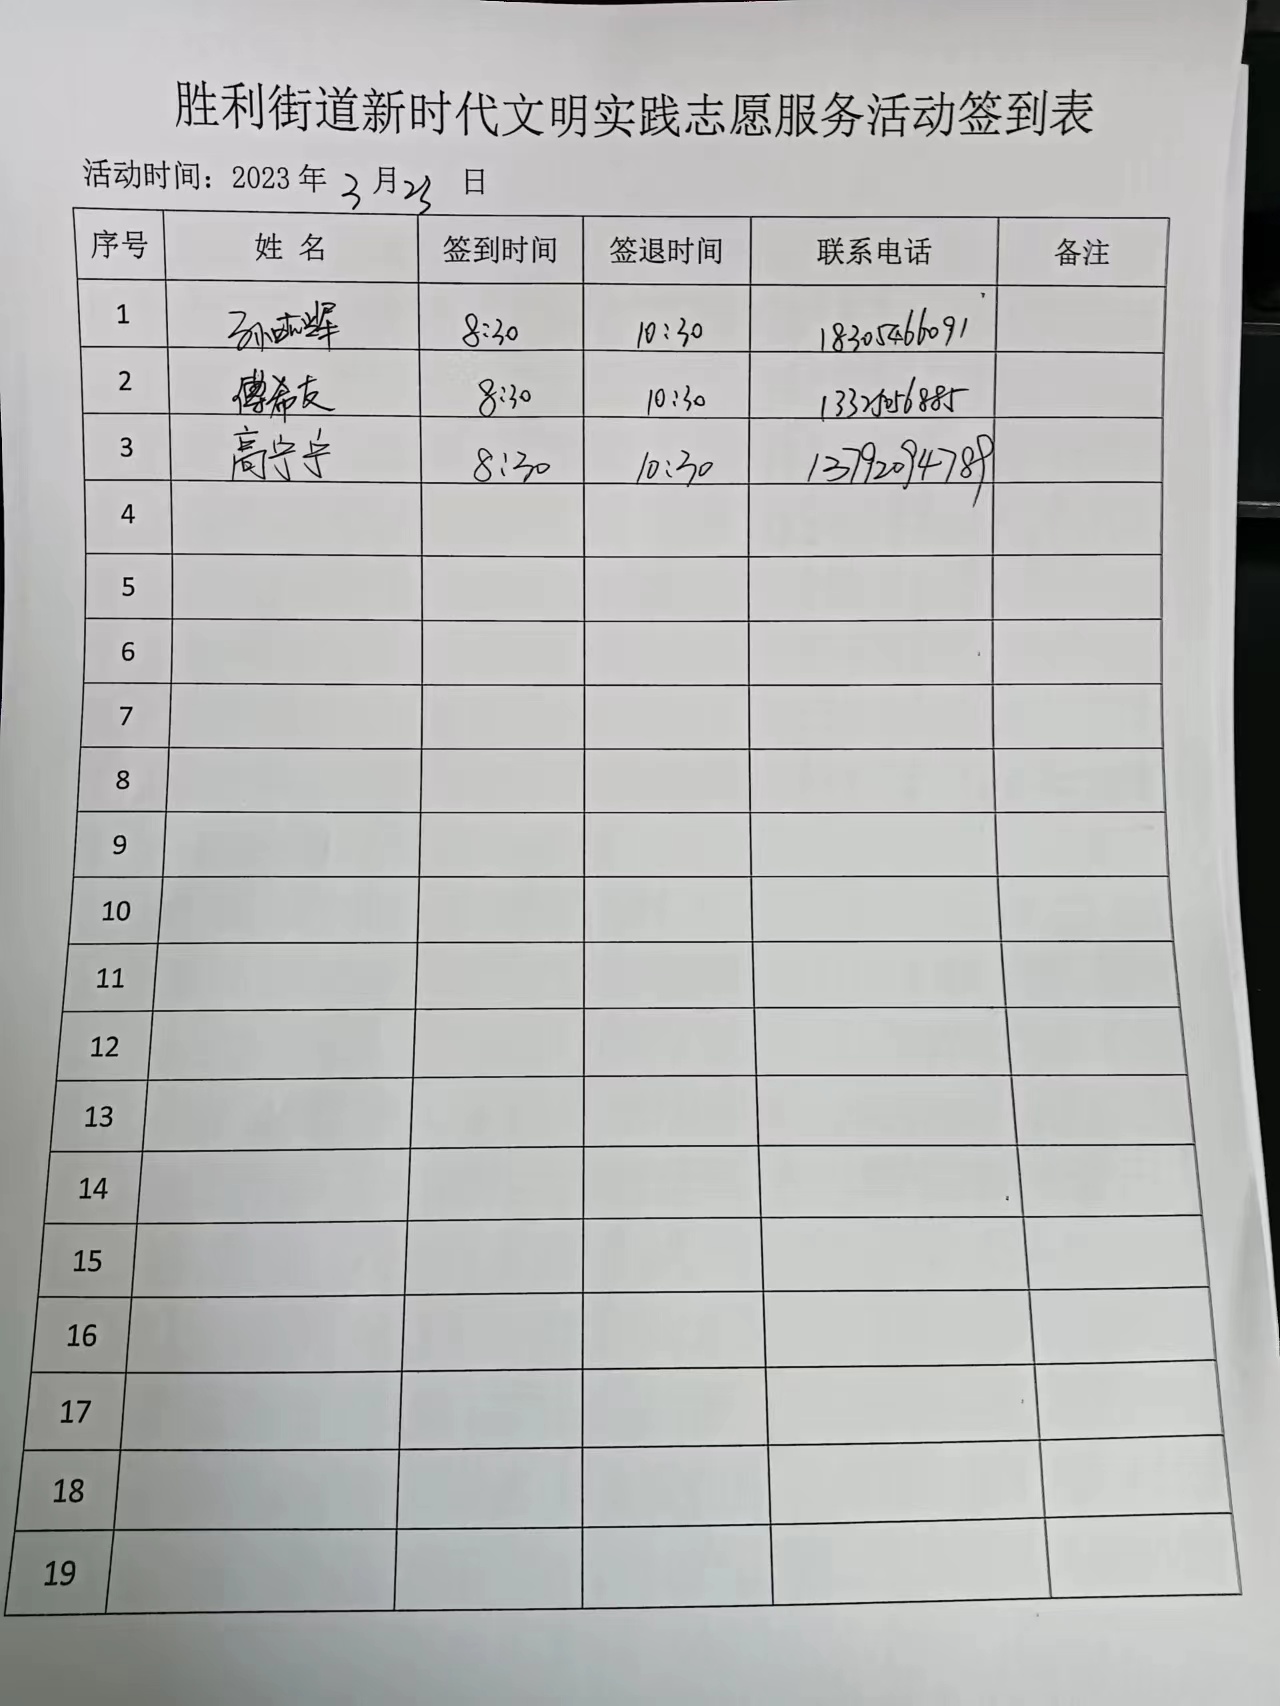 胜利街道新时代文明实践志愿服务活动签到表
活动时间：2023 年 3 月 23 日
序号 姓 名 签到时间 签退时间 联系电话 备注
1 孙 8:30 10:30 18305466091
2 傅希友 8:30 10:30
3 高宁宁 8:30 10:30 13792094789
4
5
6
7
8
9
10
11
12
13
14
15
16
17
18
19